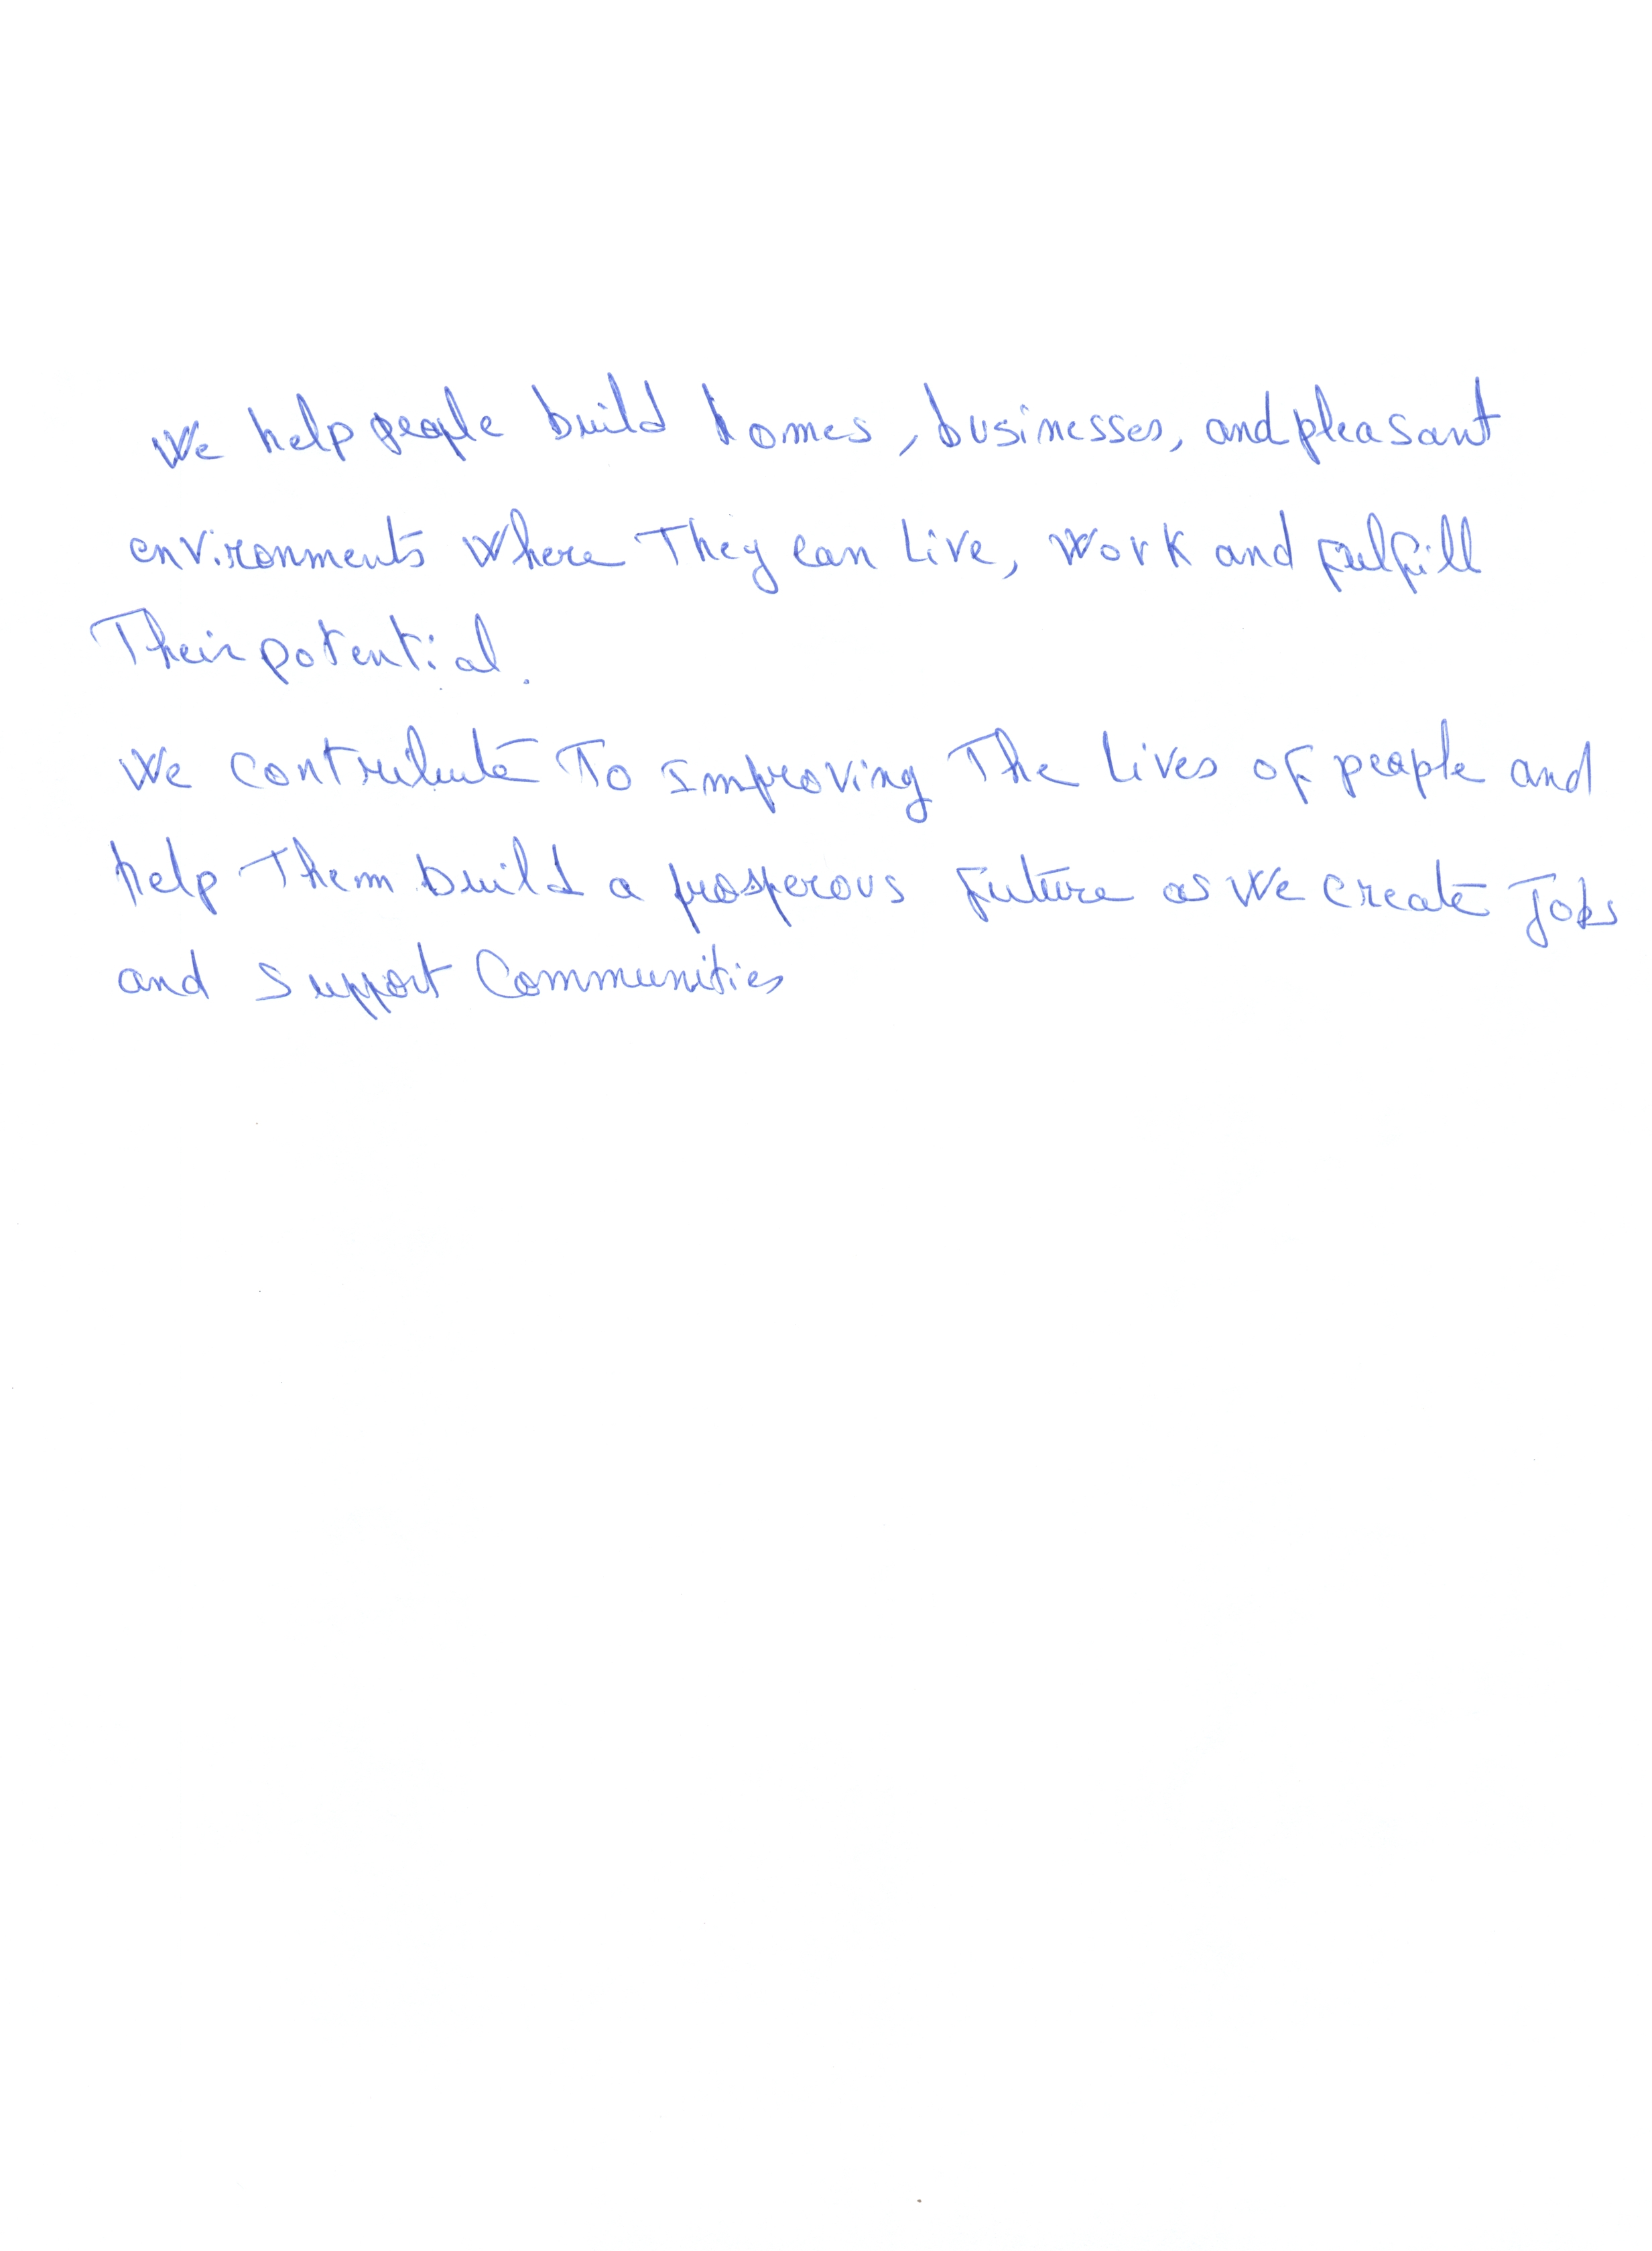 We help people build homes, businesses, and pleasant
environments where They can Live, work and fulfill
Their potential.
We contribute To Improving The Lives of people and
help Them build a prosperous future as we create Jobs
and support Communities